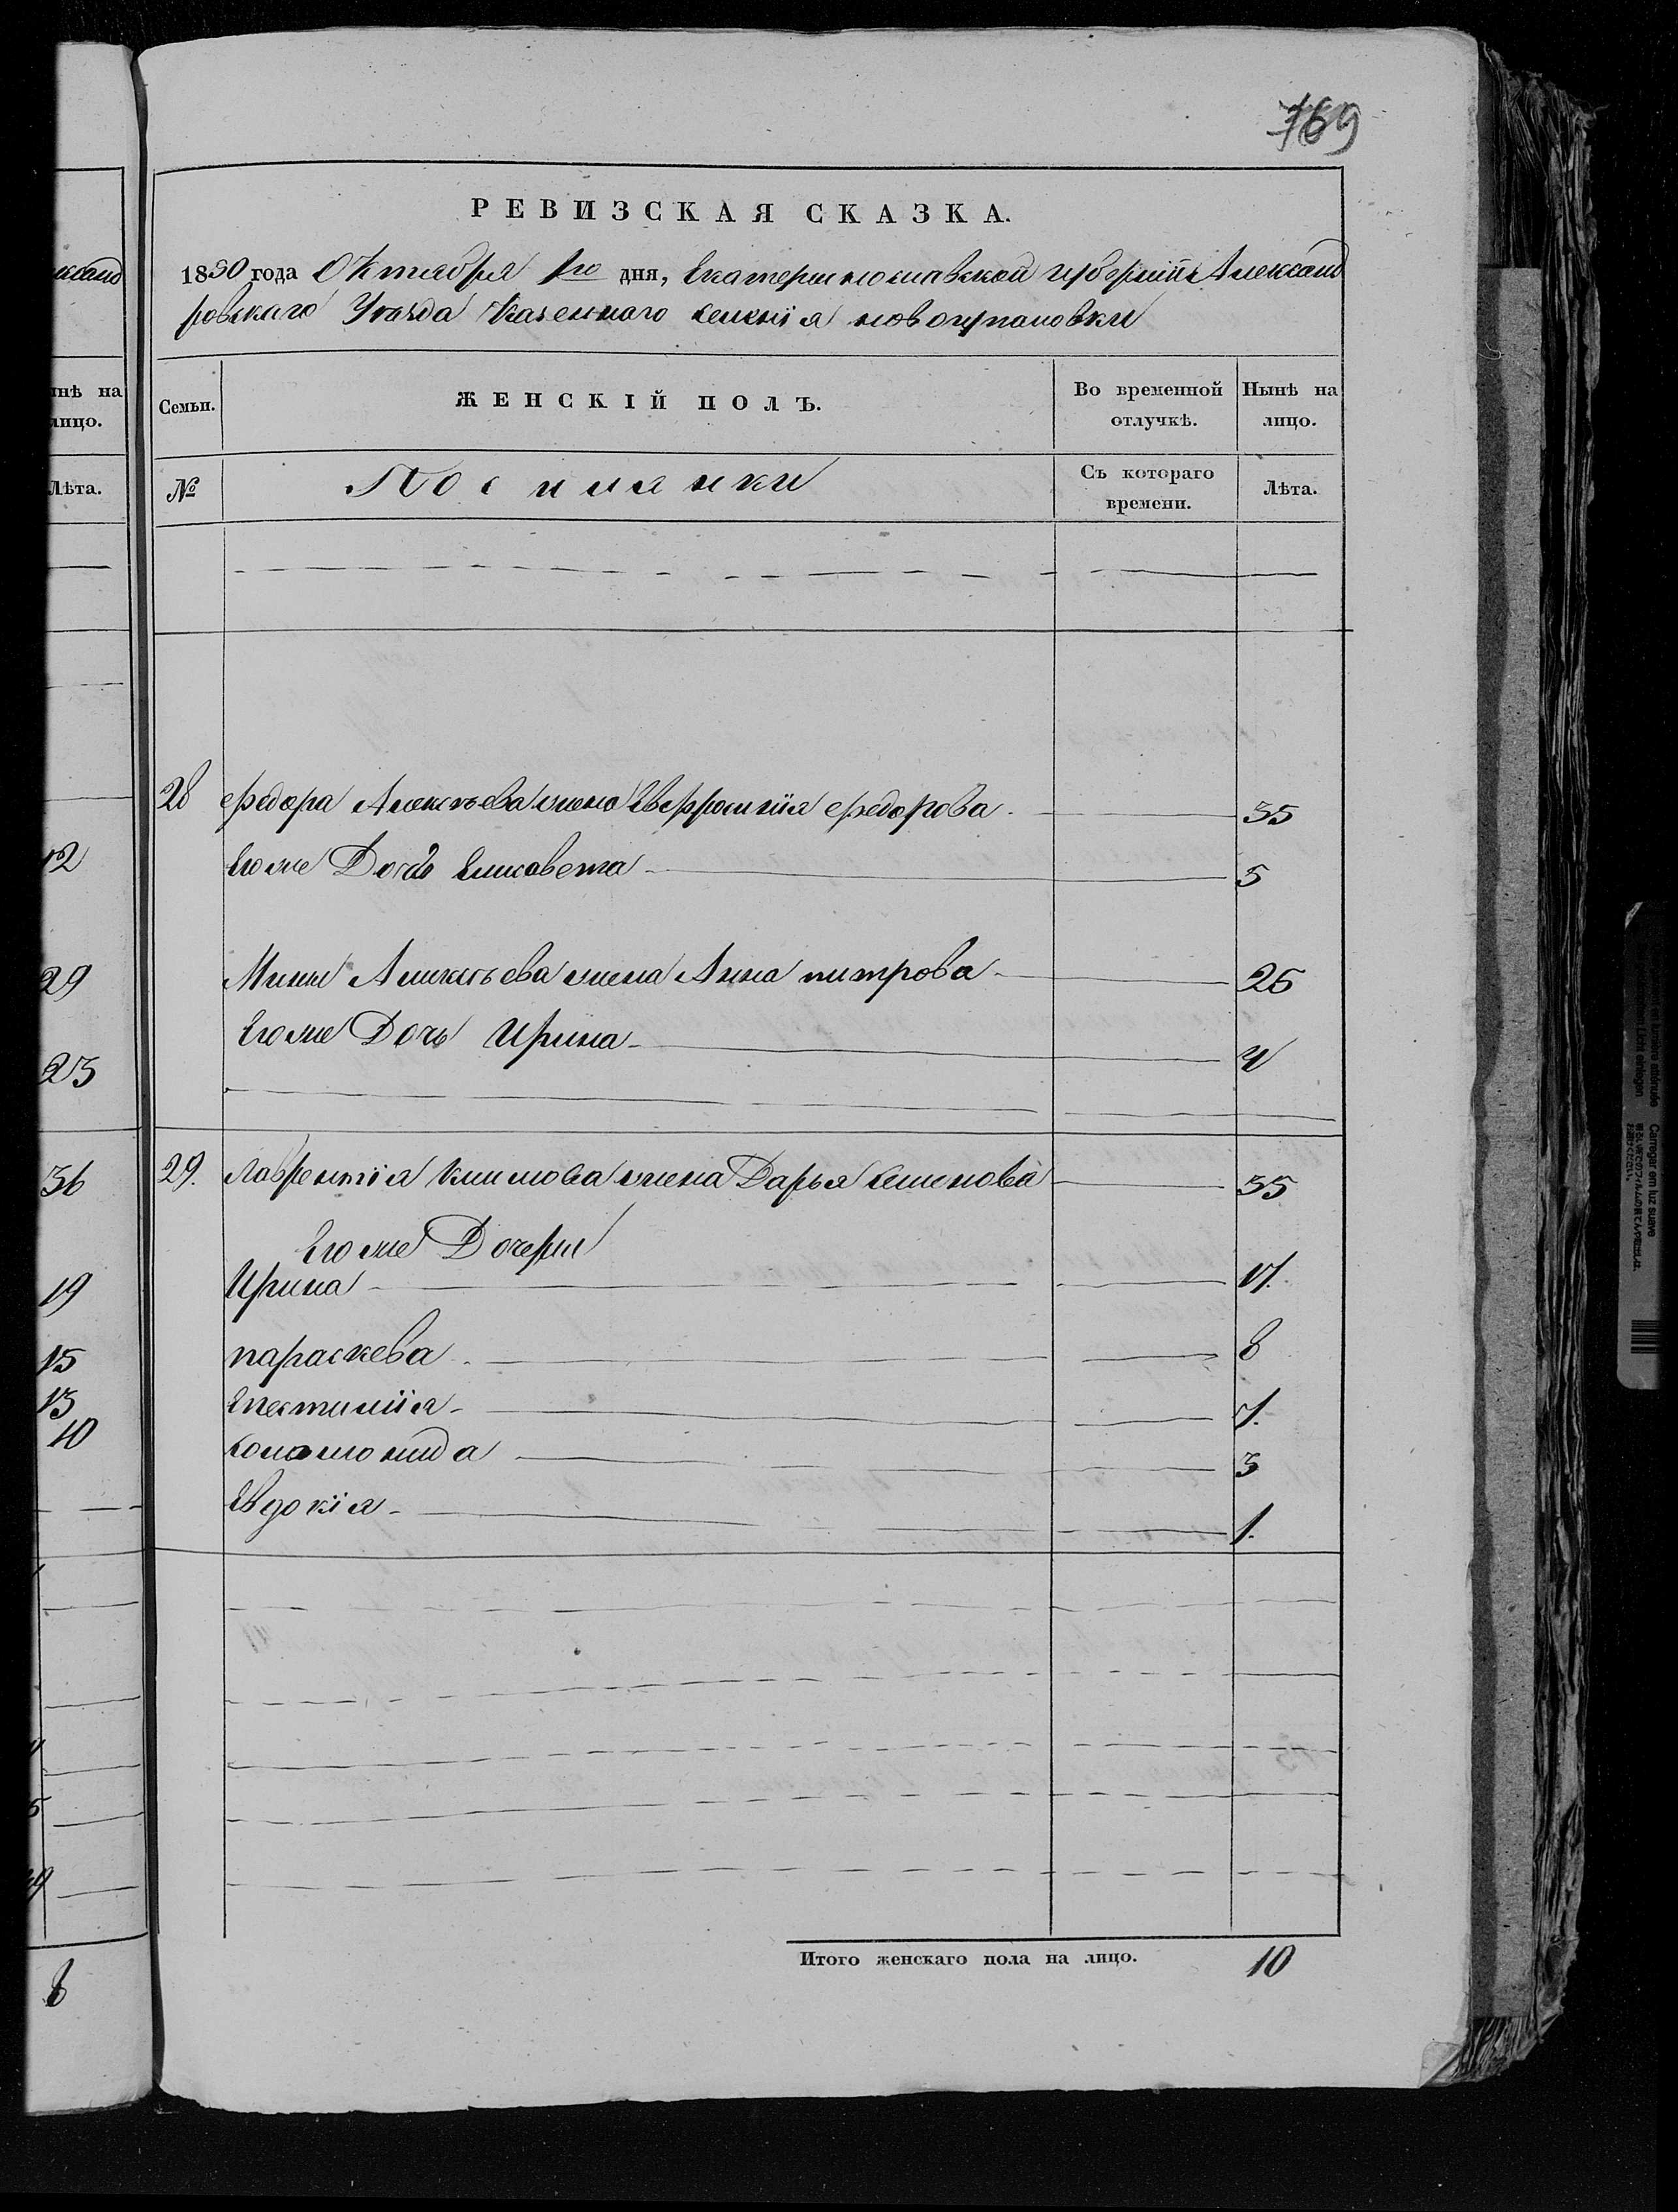 769
РЕВИЗСКАЯ СКАЗКА.
1850 года Октября 1го дня, Екатеринославской губерніи Александ
ровскаго Уѣзда Казеннаго селенія новогупаловки
Семьи. ЖЕНСКІЙ ПОЛЪ. Во временной отлучкѣ. Нынѣ на лицо.
№ Посилянки Съ котораго времени. Лѣта.
28 Федора Алексѣева жена Евфросинія Федорова 35
Его же Дочь Елисавета 5
Мины Алексѣева жена Анна питрова 26
Его же Дочь Ирина 4
29. Лаврентія Климова жена Дарья Семенова 35
Его же Дочери
Ирина 17.
параскева 8
Епестимія 7.
соломонида 3
Евдокія 1.
Итого женскаго пола на лицо. 10
ксанд
нѣ на
лицо.
Лѣта.
12
29
23
36
19
15
13
10
8